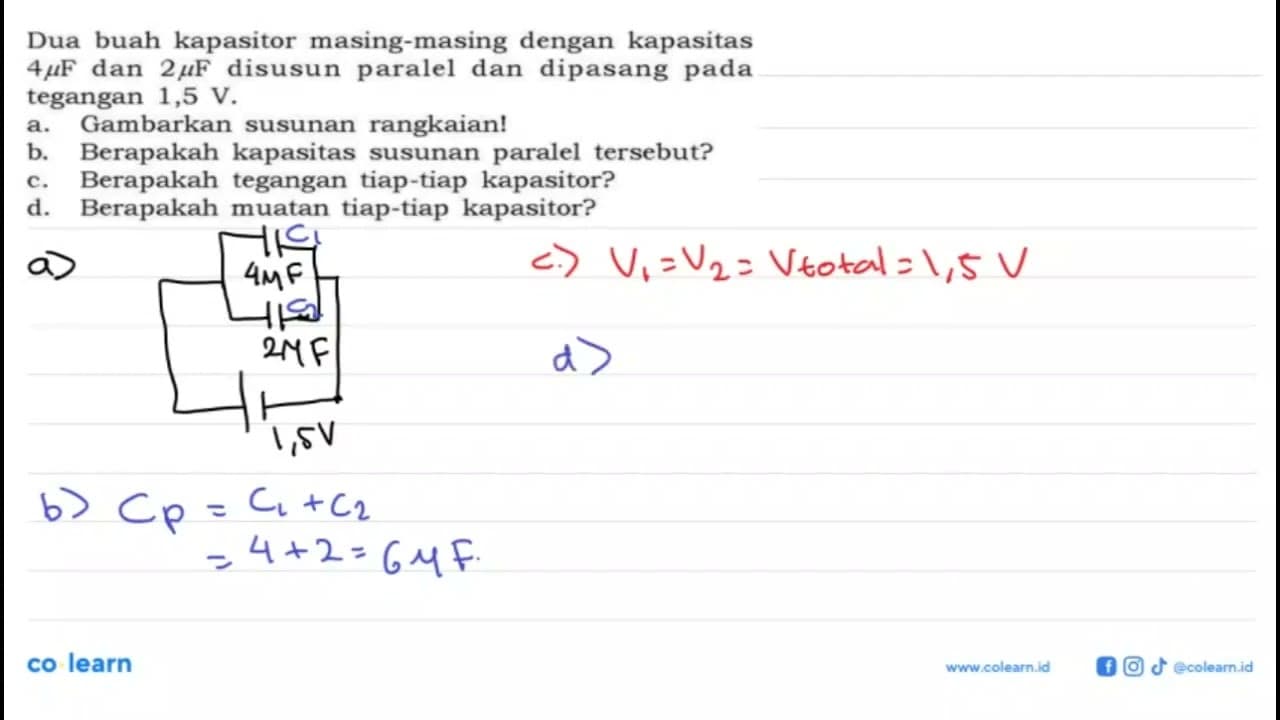 Dua buah kapasitor masing-masing dengan kapasitas
4μF dan 2μF disusun paralel dan dipasang pada
tegangan 1,5 V.
a. Gambarkan susunan rangkaian!
b. Berapakah kapasitas susunan paralel tersebut?
c. Berapakah tegangan tiap-tiap kapasitor?
d. Berapakah muatan tiap-tiap kapasitor?
a)
C₁
4μF
C₂
2μF
1,5V
b) Cp = C₁ + C₂
= 4 + 2 = 6 μF.
c.) V₁ = V₂ = Vtotal = 1,5 V
d)
co learn
www.colearn.id
@colearn.id